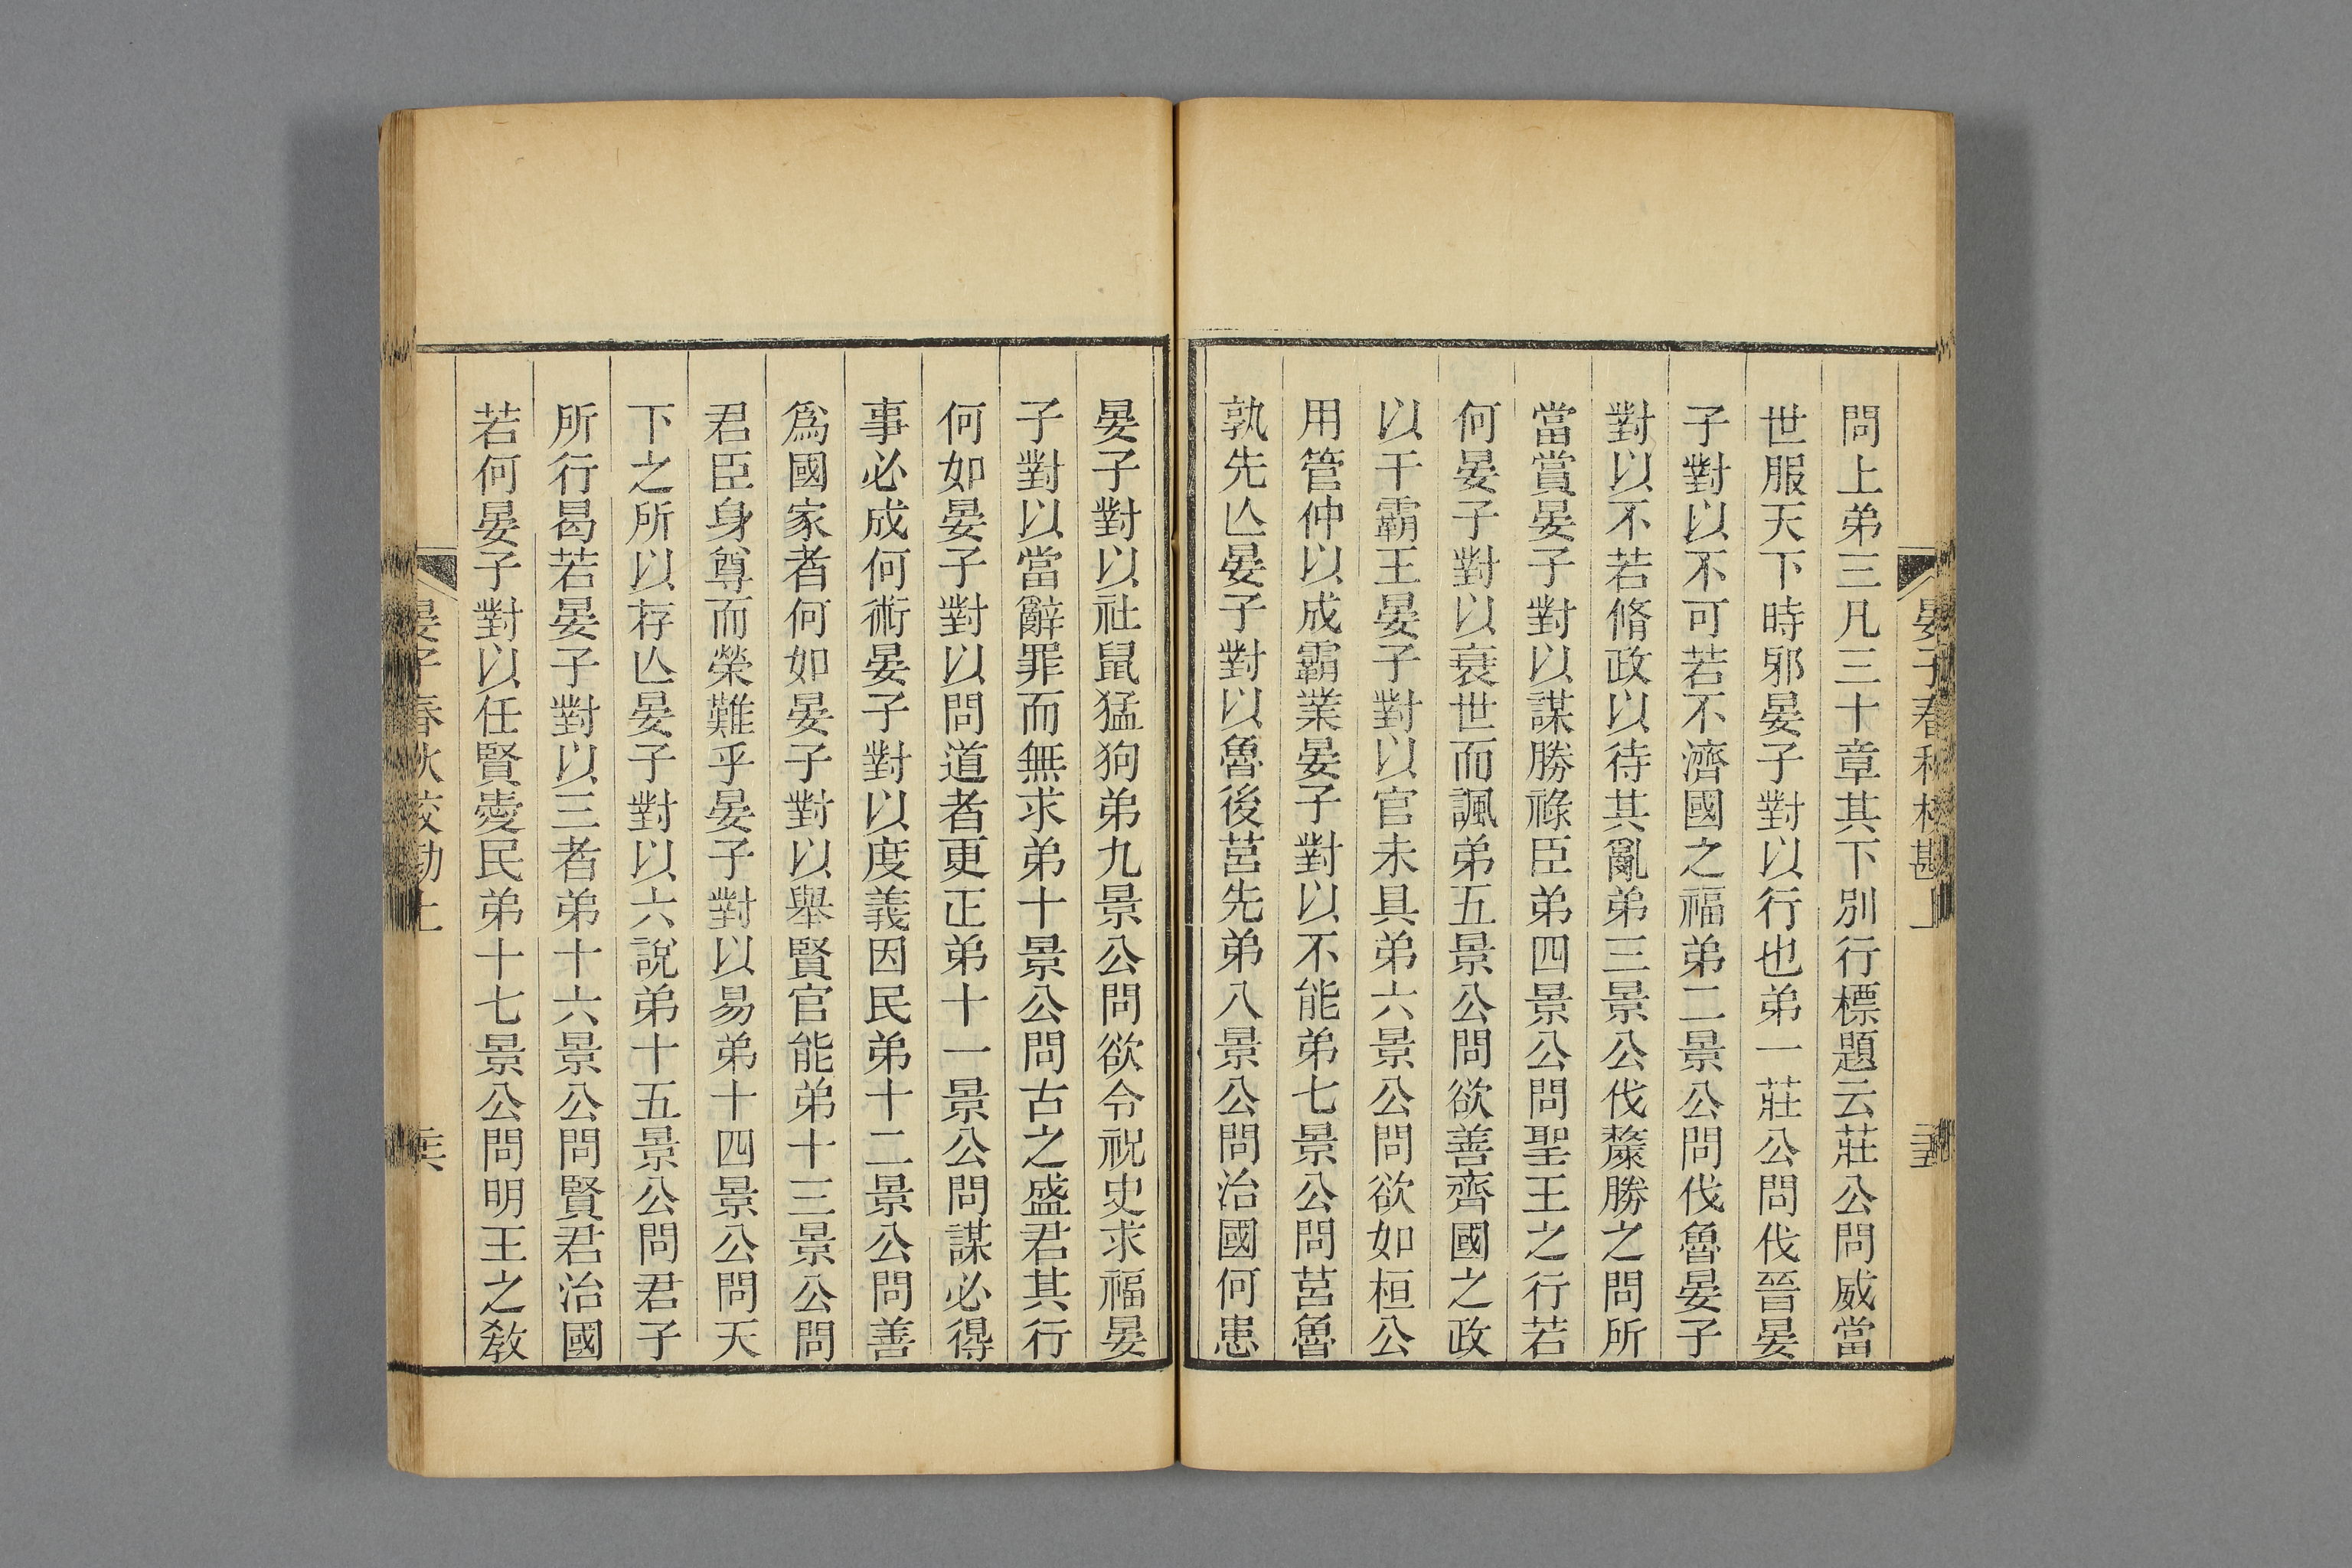 問上弟三凡三十章其下別行標題云莊公問威當
世服天下時邪晏子對以行也弟一莊公問伐晉晏
子對以不可若不濟國之福弟二景公問伐魯晏子
對以不若脩政以待其亂弟三景公伐斄勝之問所
當賞晏子對以謀勝祿臣弟四景公問聖王之行若
何晏子對以衰世而諷弟五景公問欲善齊國之政
以干霸王晏子對以官未具弟六景公問欲如桓公
用管仲以成霸業晏子對以不能弟七景公問莒魯
孰先亾晏子對以魯後莒先弟八景公問治國何患
晏子對以社鼠猛狗弟九景公問欲令祝史求福晏
子對以當辭罪而無求弟十景公問古之盛君其行
何如晏子對以問道者更正弟十一景公問謀必得
事必成何術晏子對以度義因民弟十二景公問善
爲國家者何如晏子對以舉賢官能弟十三景公問
君臣身尊而榮難乎晏子對以易弟十四景公問天
下之所以存亾晏子對以六說弟十五景公問君子
所行曷若晏子對以三者弟十六景公問賢君治國
若何晏子對以任賢愛民弟十七景公問明王之教
晏子春秋校勘上